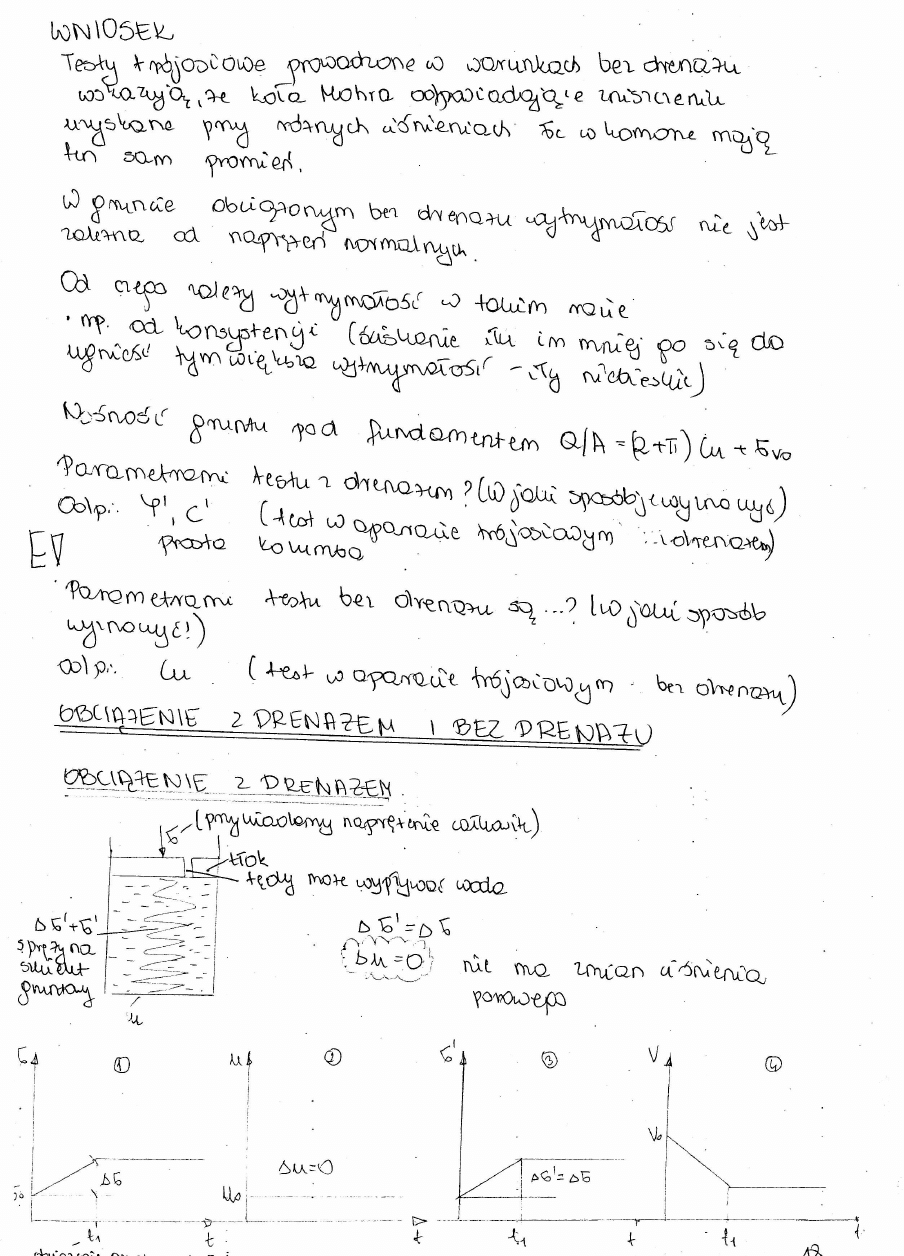 WNIOSEK
Testy trójosiowe prowadzone w warunkach bez drenażu
wskazują, że koła Mohra odpowiadające zniszczeniu
uzyskane przy różnych ciśnieniach σc w komorze mają
ten sam promień.
W gruncie obciążonym bez drenażu wytrzymałość nie jest
zależna od naprężeń normalnych.
Od czego zależy wytrzymałość w takim razie
· np. od konsystencji (ściskanie iłu im mniej go się da
ugnieść tym większa wytrzymałość - iły niebieskie)
Nośność gruntu pod fundamentem Q/A = (2+π) Cu + σvo
Parametrami testu z drenażem? (W jaki sposób je wyznaczyć)
Odp.: φ', c' (test w aparacie trójosiowym z drenażem)
prosta Kolumba
Parametrami testu bez drenażu są ...? (W jaki sposób
wyznaczyć!)
odp.: Cu (test w aparacie trójosiowym bez drenażu)
OBCIĄŻENIE Z DRENAŻEM I BEZ DRENAŻU
OBCIĄŻENIE Z DRENAŻEM
σ (przykładamy naprężenie całkowite)
tłok
tędy może wypływać woda
Δσ'+σ'
sprężyna
szkielet
gruntowy
u
Δσ'=Δσ
Δu=0
nie ma zmian ciśnienia
porowego
σ ① u ② σ' ③ V ④
V₀
Δσ Δu=0 Δσ'=Δσ
σ₀ u₀
t₁ t t t₁ t t₁ t
18